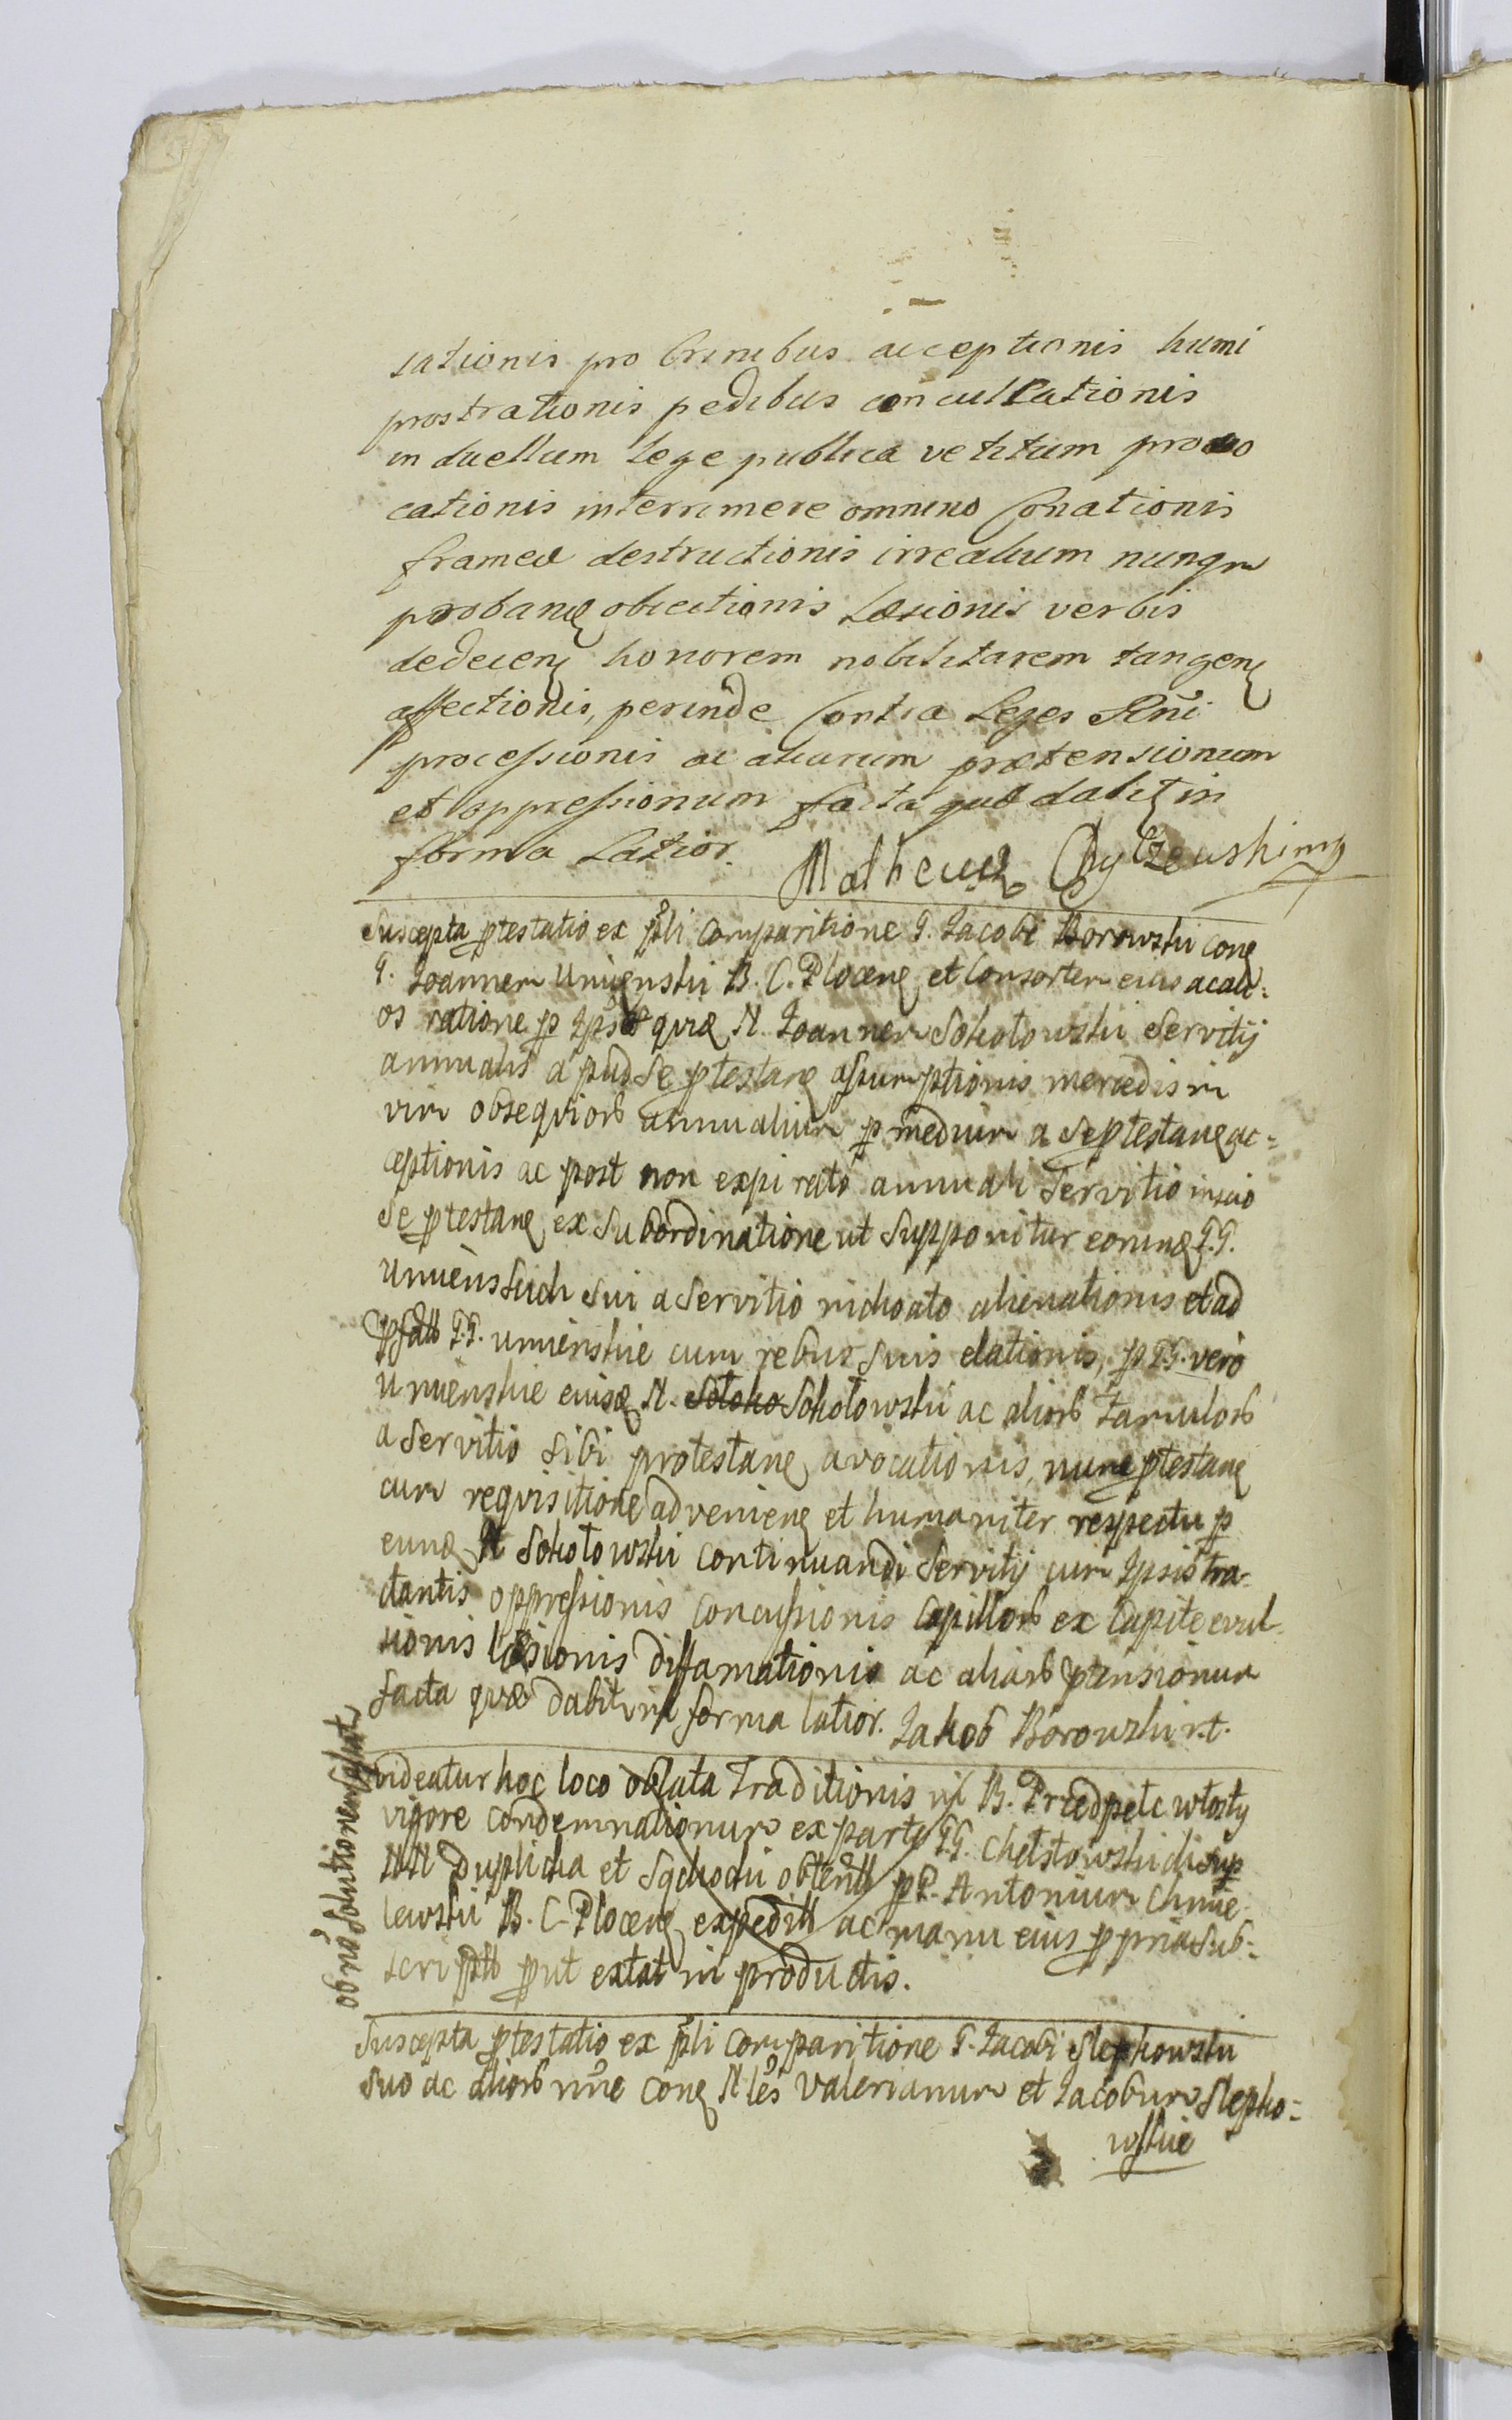 tationis pro Crinibus acceptionis humi
prostrationis pedibus conculcationis
in duellum Lege publica vetitum provo
cationis interrimere omnino Conationis
frameæ destructionis irrealium nunqm
probanę obiectionis Læsionis verbis
dedecenę honorem nobilitarem tangenę
affectionis, perinde Contra Leges Rñi
processionis ac aliarum prætensionum
et oppressionum facta quæ dabit in
forma Latior. Matheusz
Suscepta ptestatio ex pli comparitione G. Jacobi Borowski conę
G. Joannem Umienski B. C. Plocenę et Consortem eius ac ali:
os ratione p Ipsos quæ N. Joannem Sokołowski Servitij
annualis apud se ptestanę assumptionis mercedis in
vim obsequiorb annualium p medium a Se ptestanę ac=
ceptionis ac post non expirato annuali Servitio inscio
Se ptestanę ex Subordinatione ut supponitur eorunę G.G.
Umienskich sui a Servitio alienationis et ad
pfatb G.G. Umienskie cum rebus suis elationis, p G.G. vero
Umienskie eiusę N. Sołoko Sokołowski ac aliorb famulorb
a Servitio sibi protestanę avocationis, nunę ptestanę
cum requisitione advenienę et humaniter respectu p
eunę N Sokołowski continuandi Servitij cum Ipsis tra-
ctantis oppressionis concussionis capillorb ex Capite evul-
sionis læsionis diffamationis ac aliarb ptensionum
facta quæ dabit in forma latior. Jakob Borowski m.
ob nõ Solutionem
videatur hoc loco oblata Traditionis in B. Przedpełc włosty
vigore condemnationum ex parte G.G. Chełstowskich sup
NN Duplicha et obtentb p G. Antonium Chmie-
lewski B. C. Plocenę expeditb ac manu eius ppria sub=
scriptb put extat in productis.
Suscepta ptestatio ex pli comparitione G. Jacobi Slepkowski
suo ac aliorb nñe conę N les Valerianum et Jacobum Slepko=
wskie